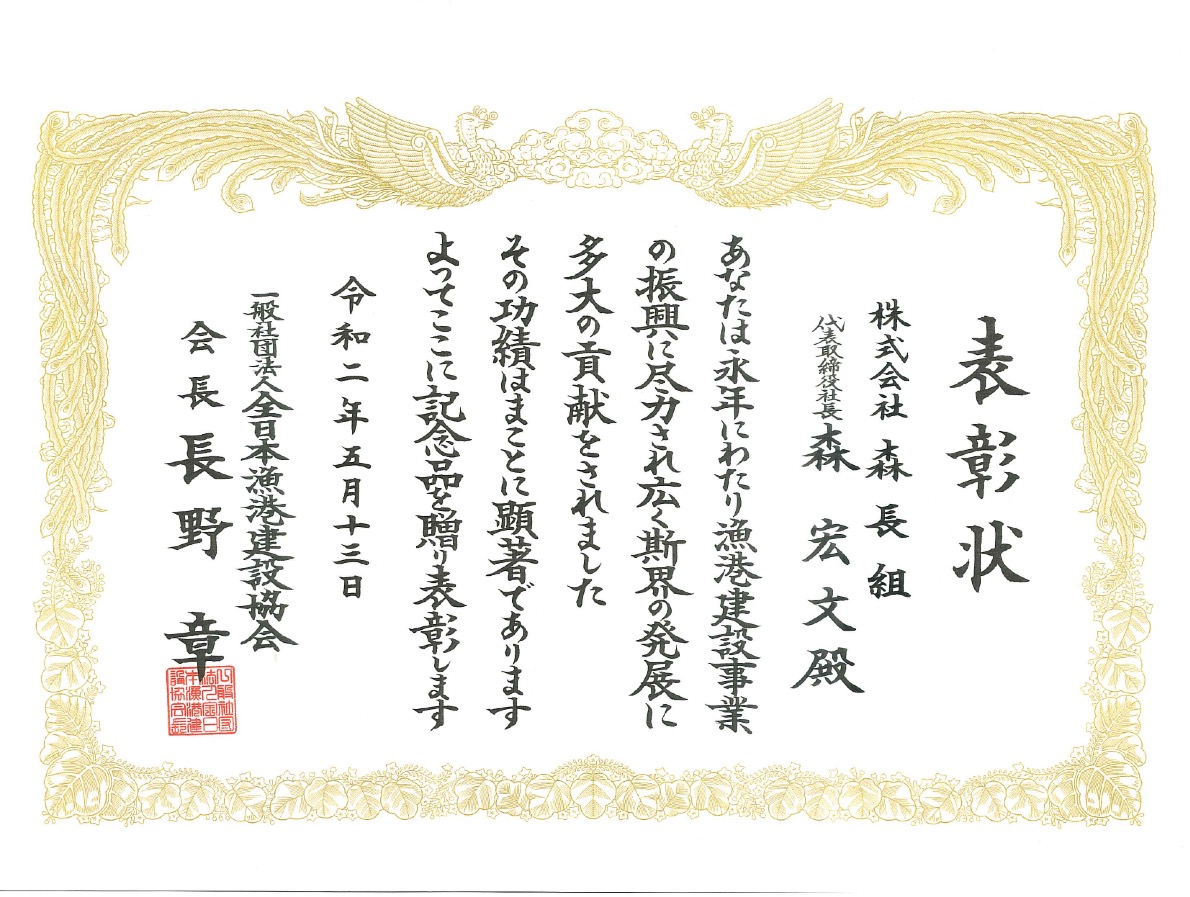 表彰状
株式会社 森長組
代表取締役社長 森 宏文殿
あなたは永年にわたり漁港建設事業
の振興に尽力され広く斯界の発展に
多大の貢献をされました
その功績はまことに顕著であります
よってここに記念品を贈り表彰します
令和二年五月十三日
一般社団法人全日本漁港建設協会
会長 長野 章